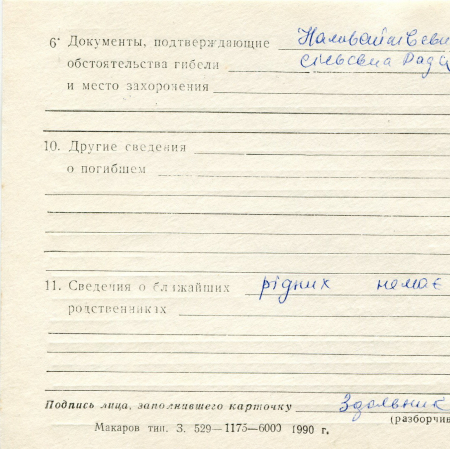 6• Документы, подтверждающие
обстоятельства гибели
и место захоронения
10. Другие сведения
о погибшем
11. Сведения о ближайших рідних немає
родственниках
Подпись лица, заполнившего карточку Здольник
(разборчив
Макаров тип. З. 529—1175—6000 1990 г.